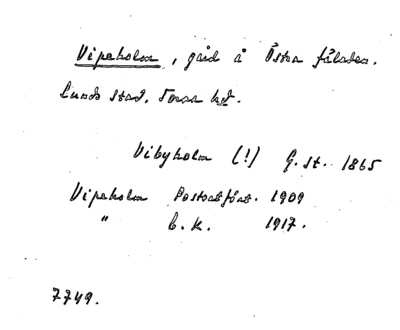 Vipeholm, gård å Östra fäladen.
Lunds stad, Torna hd.
Vibyholm (!) G. st. 1865
Vipeholm Postortfört. 1909
" E. K. 1917.
7749.